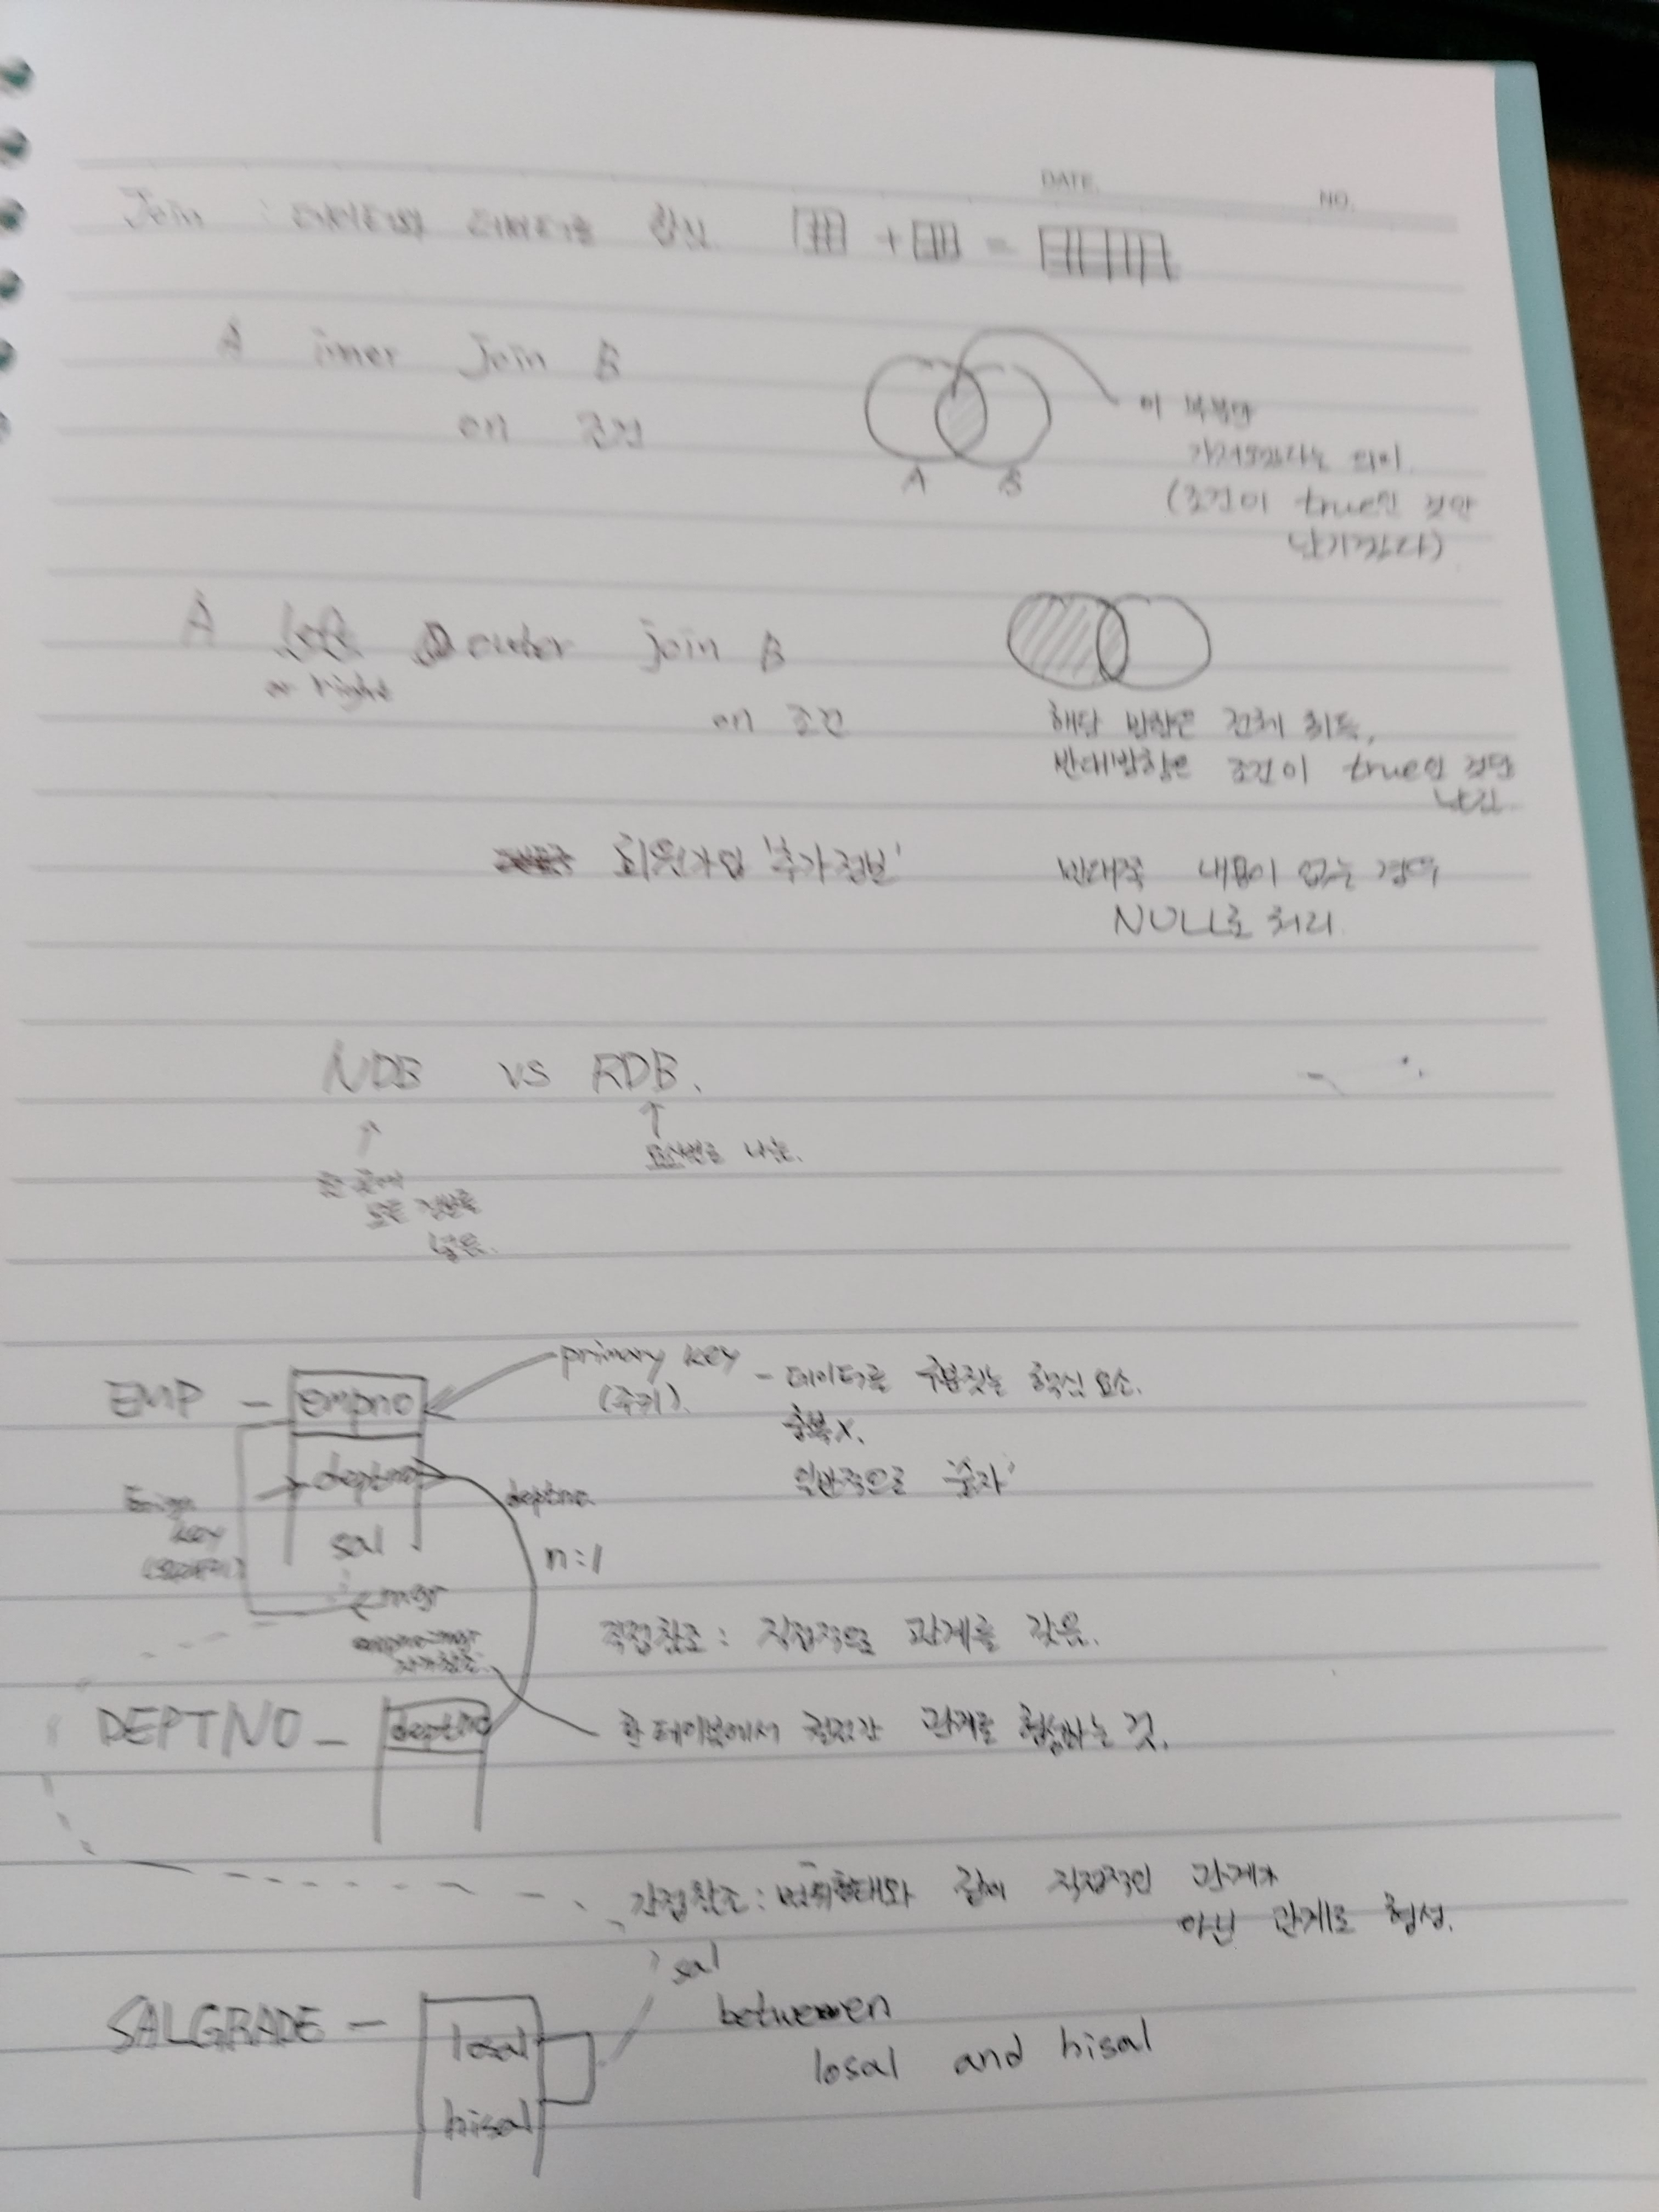 DATE. NO.
Join : 데이터와 데이터를 합침
A inner Join B
on 조건
A B
이 부분만
가져오겠다는 의미.
(조건이 true인 것만
남기겠다)
A left outer join B
or right
on 조건
해당 방향은 전체 취득,
반대방향은 조건이 true인 것만
남김.
회원가입 '추가정보'
반대쪽 내용이 없는 경우
NULL로 처리.
NDB vs RDB.
한 곳에
모든 정보를
넣음.
요소별로 나눔.
EMP - empno
primary key
(주키).
- 데이터를 구분짓는 핵심 요소.
중복X.
일반적으로 '숫자'
deptno
key
(외래키)
deptno
n:1
sal
mgr
empno-mgr
자가참조.
직접참조: 직접적으로 관계를 갖음.
DEPTNO - deptno
한 테이블에서 관계를 형성하는 것.
간접참조: 범위형태와 같이 직접적인 관계가
아닌 관계로 형성.
sal
betwewen
losal and hisal
SALGRADE - losal
hisal